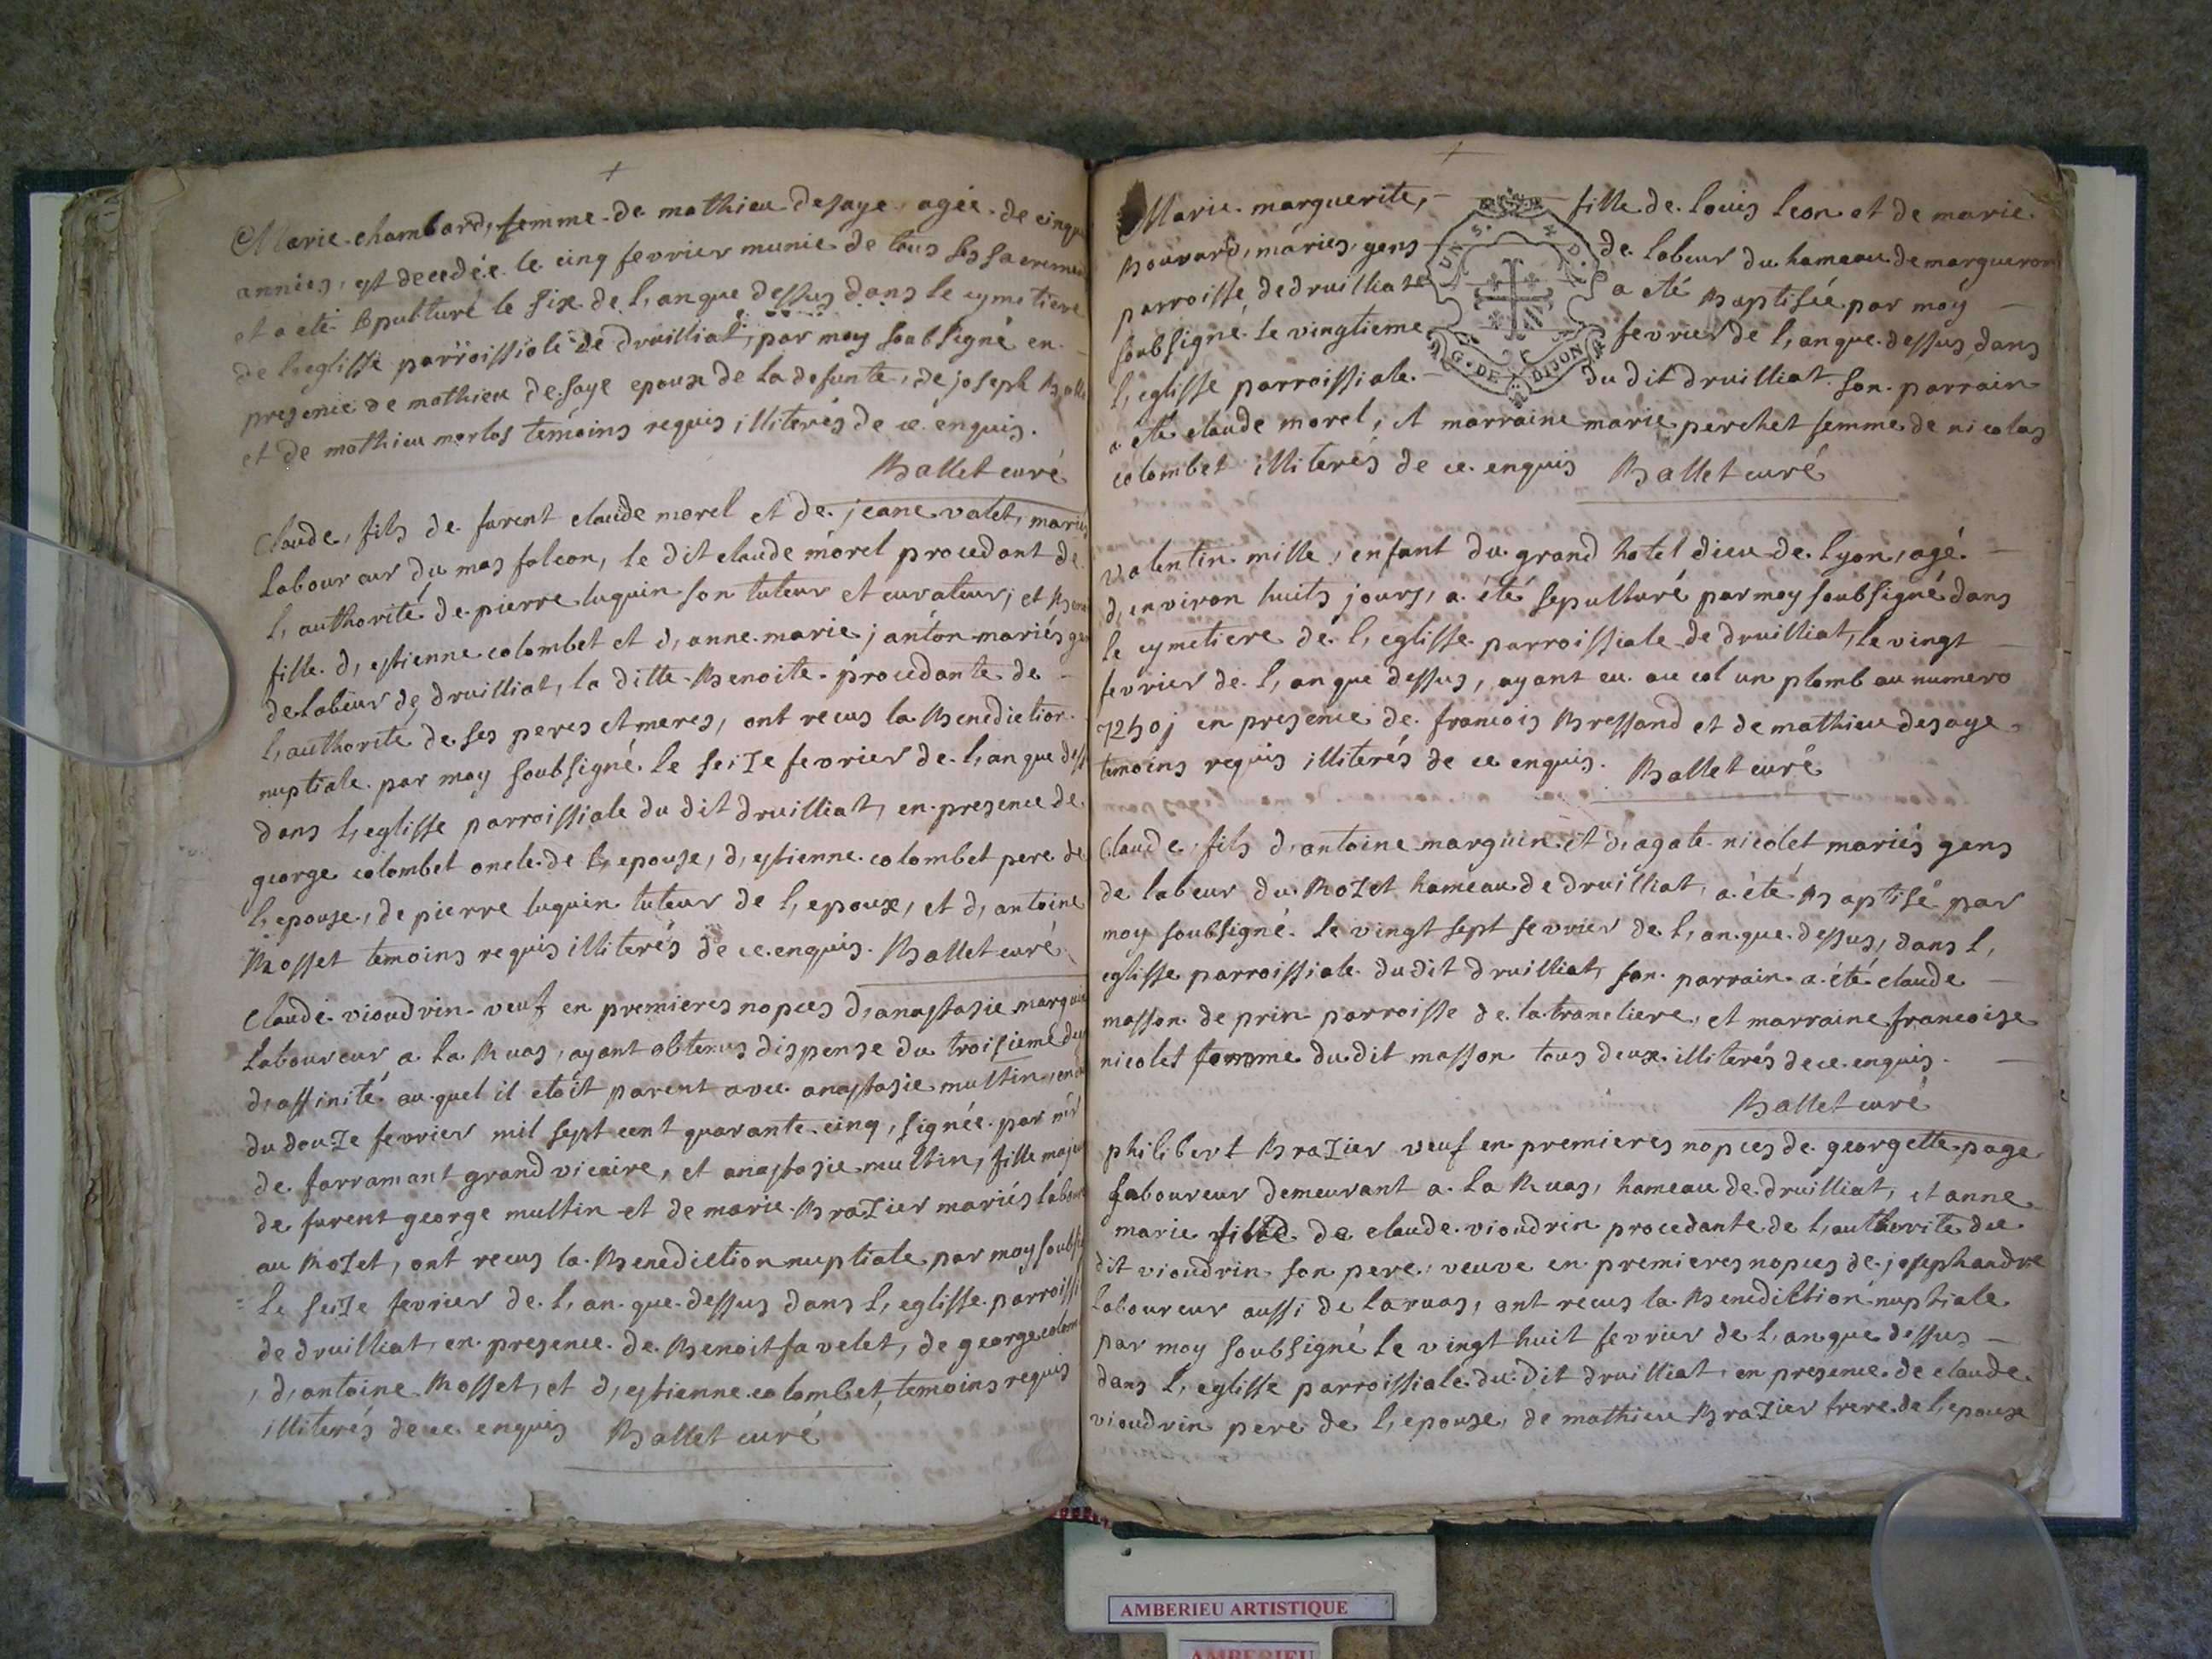 Marie chambard, femme de mathieu desaye agée de cinqu
années, est decedée le cinq fevrier munie de tous ses sacremen
et a eté sepulturé le six de l, an que dessus dans le cymetiere
de l, eglisse parroissiale de druilliat, par moy soubsigné en
presence de mathieu desaye epoux de la defunte, de joseph
et de mathieu merlos témoins requis illiterés de ce enquis.
Ballet curé
Claude, fils de furent claude morel et de jeane valet, mariés
laboureur du mas falcon, le dit claude morel procedant de
l, authorité de pierre luquin son tuteur et curateur; et
fille d, estienne colombet et d, anne marie janton mariés gen
de labeur de druilliat, la ditte Benoite procedante de
l, authorite de ses peres et meres, ont recus la Benediction
nuptiale par moy soubsigné le seize fevrier de l, an que dess
dans l, eglisse parroissiale du dit druilliat, en presence de
george colombet oncle de l, epouse, d, estienne colombet pere de
l, epouse, de pierre luquin tuteur de l, epoux, et d, antoine
Rosset temoins requis illiterés de ce enquis. Ballet curé
Claude vioudrin veuf en premieres nopces d, anastasie marquin
laboureur a la Ruas, ayant obtenus dispense du troisieme du
d, affinité au quel il etoit parent avec anastasie multin, en
du douze fevrier mil sept cent quarante cinq, signée par mr
de farramant grand vicaire, et anastasie multin, fille majeu
de furent george multin et de marie Brazier mariés labou
au Rozet, ont recus la Benediction nuptiale par moy soubsi
le seize fevrier de l, an que dessus dans l, eglisse parroissi
de druilliat, en presence de Benoit favelet, de george colom
, d, antoine Rosset, et d, estienne colombet, temoins requis
illiterés de ce enquis Ballet curé
Marie marguerite, fille de louis leon et de marie
Bouvard, mariés, gens de labeur du hameau de margueron
parroisse de druilliat a eté Baptisée par moy
soubsigné le vingtieme fevrier de l, an que dessus dans
l, eglisse parroissiale du dit druilliat son parrain
a été claude morel, et marraine marie perchet femme de nicolas
colombet illiterés de ce enquis Ballet curé
G. DE DIJON
valentin mille, enfant du grand hotel dieu de lyon, agé
d, environ huits jours, a été sepulturé par moy soubsigné dans
le cymetiere de l, eglisse parroissiale de druilliat, le vingt
fevrier de l, an que dessus, ayant eu au col un plomb au numero
en presence de francois Bressand et de mathieu desaye
temoins requis illiterés de ce enquis. Ballet curé
Claude, fils d, antoine marquin et d, agate nicolet mariés gens
de labeur du Rozet hameau de druilliat, a été Baptisé par
moy soubsigné le vingt sept fevrier de l, an que dessus, dans l,
eglisse parroissiale du dit druilliat, son parrain a été claude
masson de prin parroisse de la trancliere, et marraine francoise
nicolet femme du dit masson tous deux illiterés de ce enquis.
Ballet curé
philibert Brazier veuf en premieres nopces de georgette page
laboureur demeurant a la Ruas, hameau de druilliat, et anne
marie fille de claude vioudrin procedante de l, authorité du
dit vioudrin son pere, veuve en premieres nopces de joseph andre
laboureur aussi de la ruas, ont recus la Benediction nuptiale
par moy soubsigné le vingt huit fevrier de l, an que dessus
dans l, eglisse parroissiale du dit druilliat, en presence de claude
vioudrin pere de l, epouse, de mathieu Brazier frere de l, epoux
AMBERIEU ARTISTIQUE
AMBERIEU